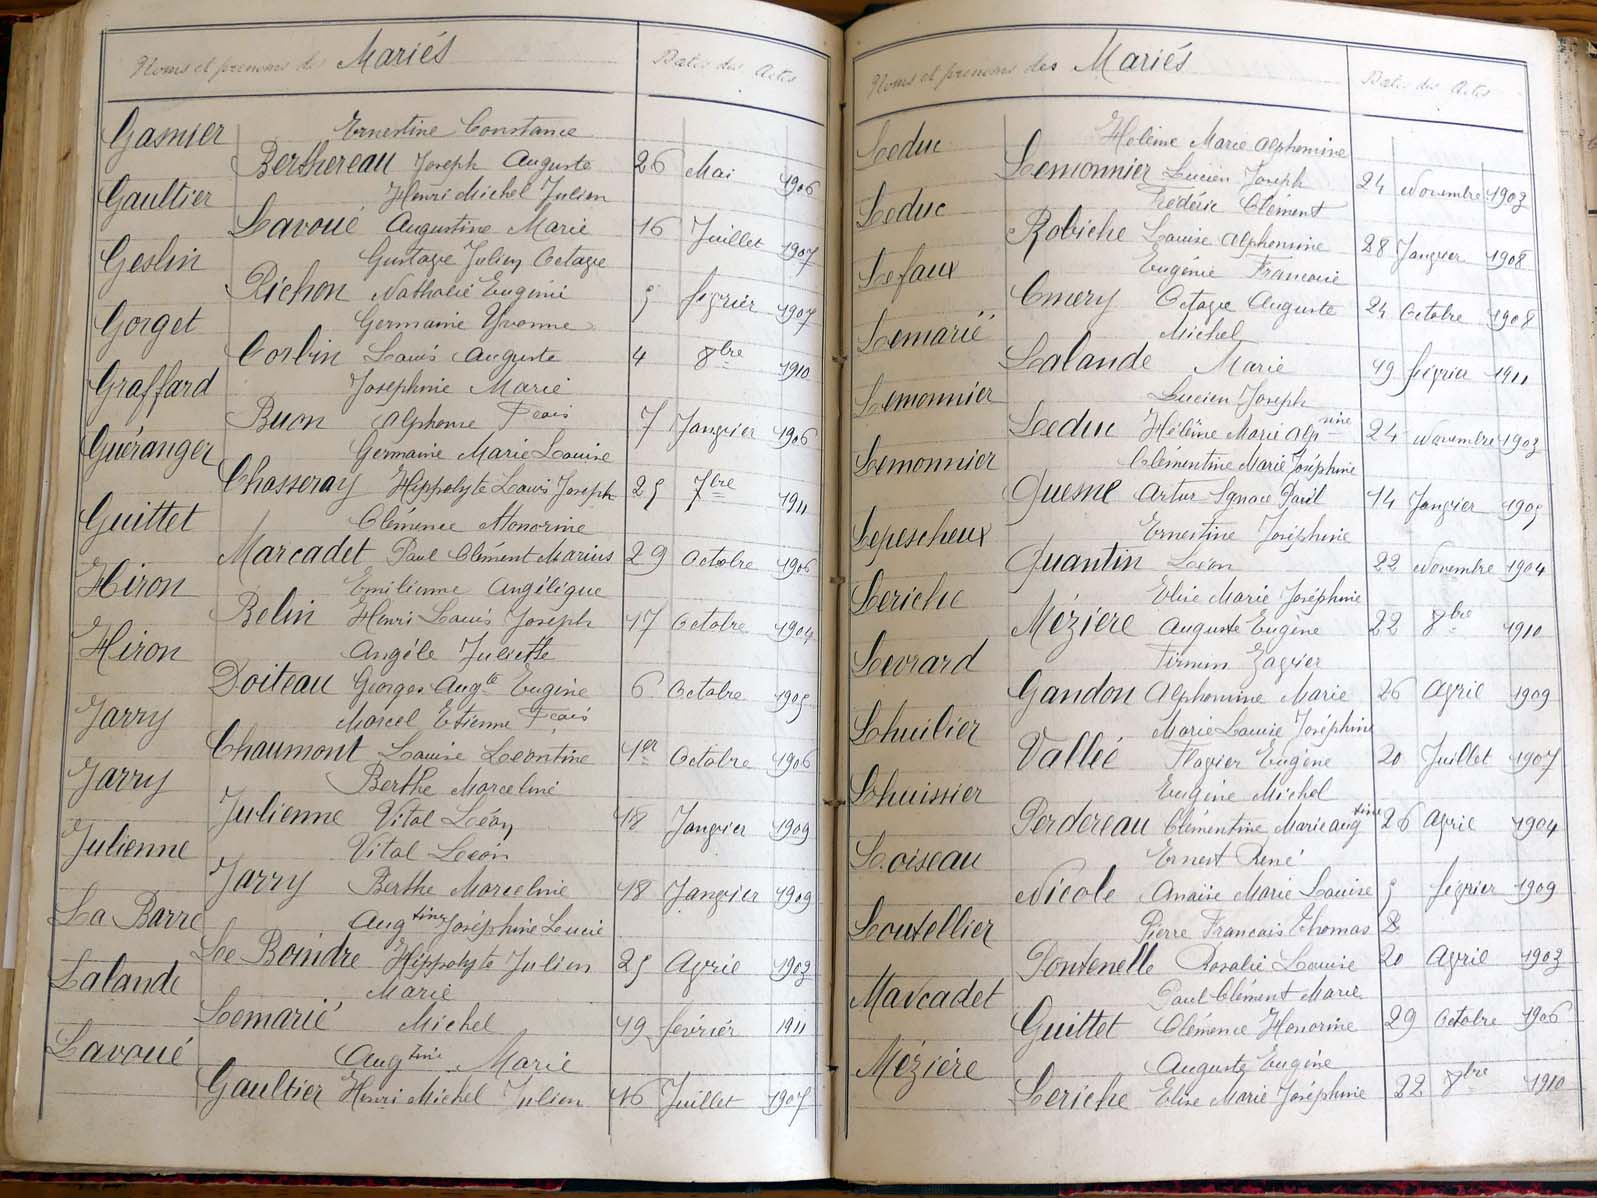 Noms et prenoms des Mariés Dates des Actes
Gasnier Ernestine Constance
Berthereau Joseph Auguste 26 Mai 1906
Gaultier Henri Michel Julien
Lavoué Augustine Marie 16 Juillet 1907
Geslin Gustave Julien Octave
Richon Nathalie Eugénie 5 février 1907
Gorget Germaine Yvonne
Corbin Louis Auguste 4 8bre 1910
Graffard Joséphine Marie
Buon Alphonse Fçois 7 Janvier 1906
Guéranger Germaine Marie Louise
Chasseray Hippolyte Louis Joseph 25 7bre 1911
Guittet Clémence Honorine
Marcadet Paul Clément Marius 29 Octobre 1906
Hiron Emilienne Angélique
Belin Henri Louis Joseph 17 Octobre 1904
Hiron Angèle Juliette
Doiteau Georges Augte Eugène 6 Octobre 1905
Jarry Marcel Etienne Fçois
Chaumont Louise Léontine 1er Octobre 1906
Jarry Berthe Marceline
Julienne Vital Léon 18 Janvier 1909
Julienne Vital Léon
Jarry Berthe Marceline 18 Janvier 1909
La Barre Augtine Joséphine Lucie
Le Boindre Hippolyte Julien 25 Avril 1903
Lalande Marie
Lemarié Michel 19 février 1911
Lavoué Augtine Marie
Gaultier Henri Michel Julien 16 Juillet 1907
Noms et prenoms des Mariés Dates des Actes
Leduc Hélène Marie Alphonsine
Lemonnier Lucien Joseph 24 Novembre 1903
Leduc Frédéric Clément
Robiche Louise Alphonsine 28 Janvier 1908
Lefaux Eugénie Francoise
Emery Octave Auguste 24 Octobre 1908
Lemarié Michel
Lalande Marie 19 février 1911
Lemonnier Lucien Joseph
Leduc Hélène Marie Alpnsine 24 Novembre 1903
Lemonnier Clémentine Marie Joséphine
Quesne Artur Ignace Paul 14 Janvier 1905
Lepescheux Ernestine Joséphine
Quantin Léon 22 Novembre 1904
Leriche Elise Marie Joséphine
Mézière Auguste Eugène 22 8bre 1910
Levrard Firmin Xavier
Gandon Alphonsine Marie 26 Avril 1909
Lhuilier Marie Louise Joséphine
Vallée Flavier Eugène 20 Juillet 1907
Lhuissier Eugène Michel
Perdereau Clémentine Marie Augtine 26 Avril 1904
Loiseau Ernest René
Nicole Anaïse Marie Louise 5 février 1909
Loutellier Pierre Francois Thomas &
Fontenelle Rosalie Louise 20 Avril 1903
Marcadet Paul Clément Marie
Guittet Clémence Honorine 29 Octobre 1906
Mézière Auguste Eugène
Leriche Elise Marie Joséphine 22 8bre 1910